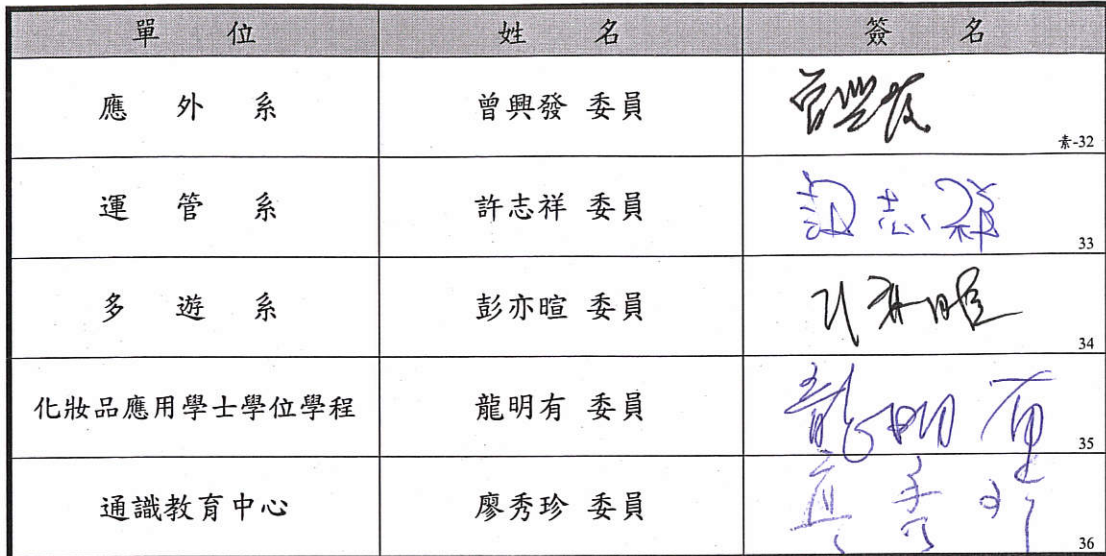 單位 姓名 簽名
應外系 曾興發 委員 曾興發 素-32
運管系 許志祥 委員 許志祥 33
多遊系 彭亦暄 委員 34
化妝品應用學士學位學程 龍明有 委員 龍明有 35
通識教育中心 廖秀珍 委員 36